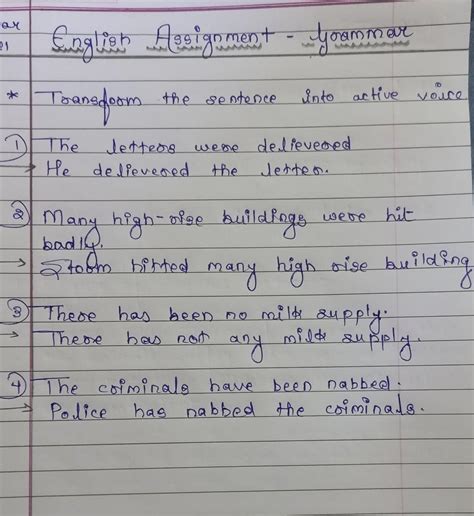 ar
21
English Assignment - Grammar
* Transform the sentence into active voice
1 The letters were delievered
→ He delievered the letter.
2 Many high-rise buildings were hit
badly.
→ Storm hitted many high rise building
3 There has been no milk supply.
→ There has not any milk supply.
4 The criminals have been nabbed.
→ Police has nabbed the criminals.